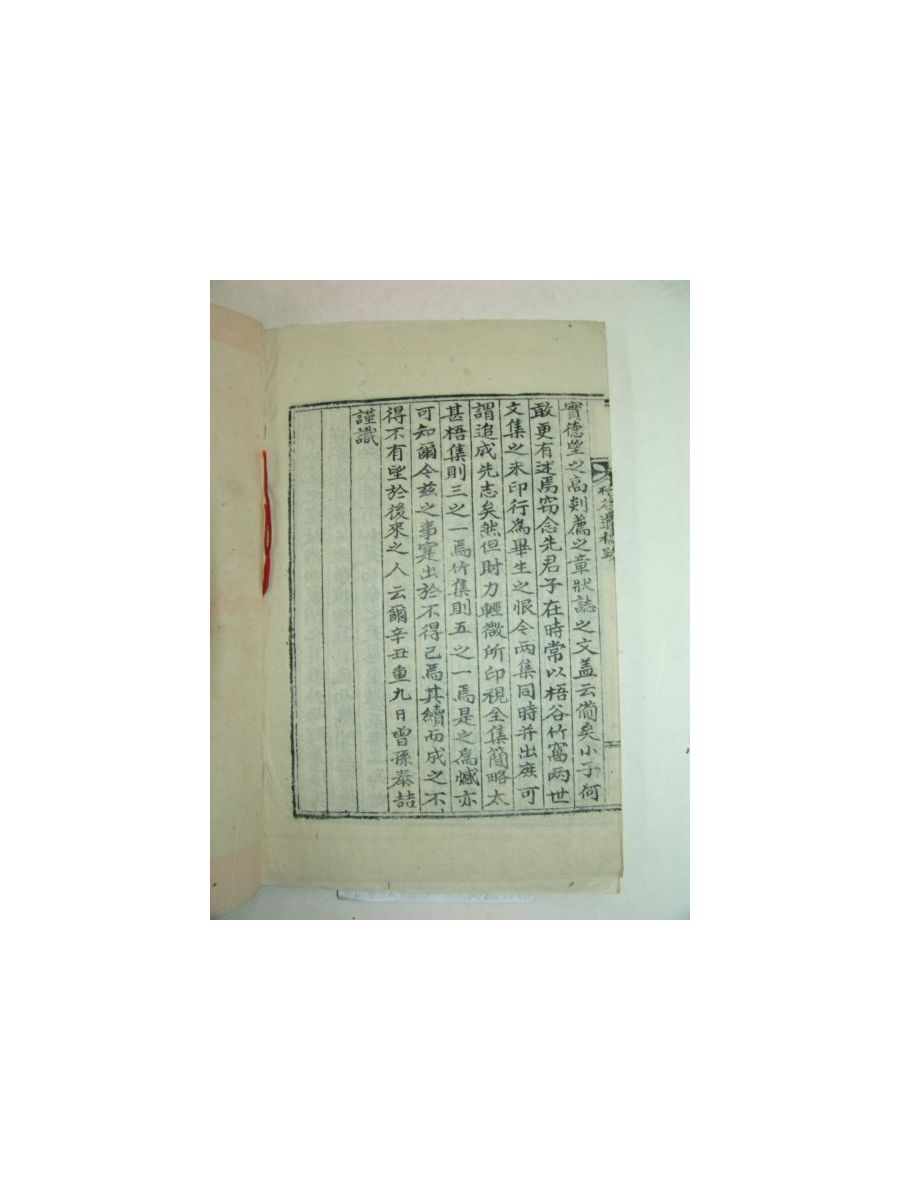 梧谷遺稿跋
實德望之高剡薦之章狀誌之文盖云備矣小子何
敢更有述焉窃念先君子在時常以梧谷竹窩兩世
文集之未印行為畢生之恨今兩集同時并出庶可
謂追成先志矣然但財力輕微所印視全集簡略太
甚梧集則三之一焉竹集則五之一焉是之爲憾亦
可知爾今茲之事寔出於不得已焉其續而成之不
得不有望於後來之人云爾辛丑重九日曾孫泰喆
謹識